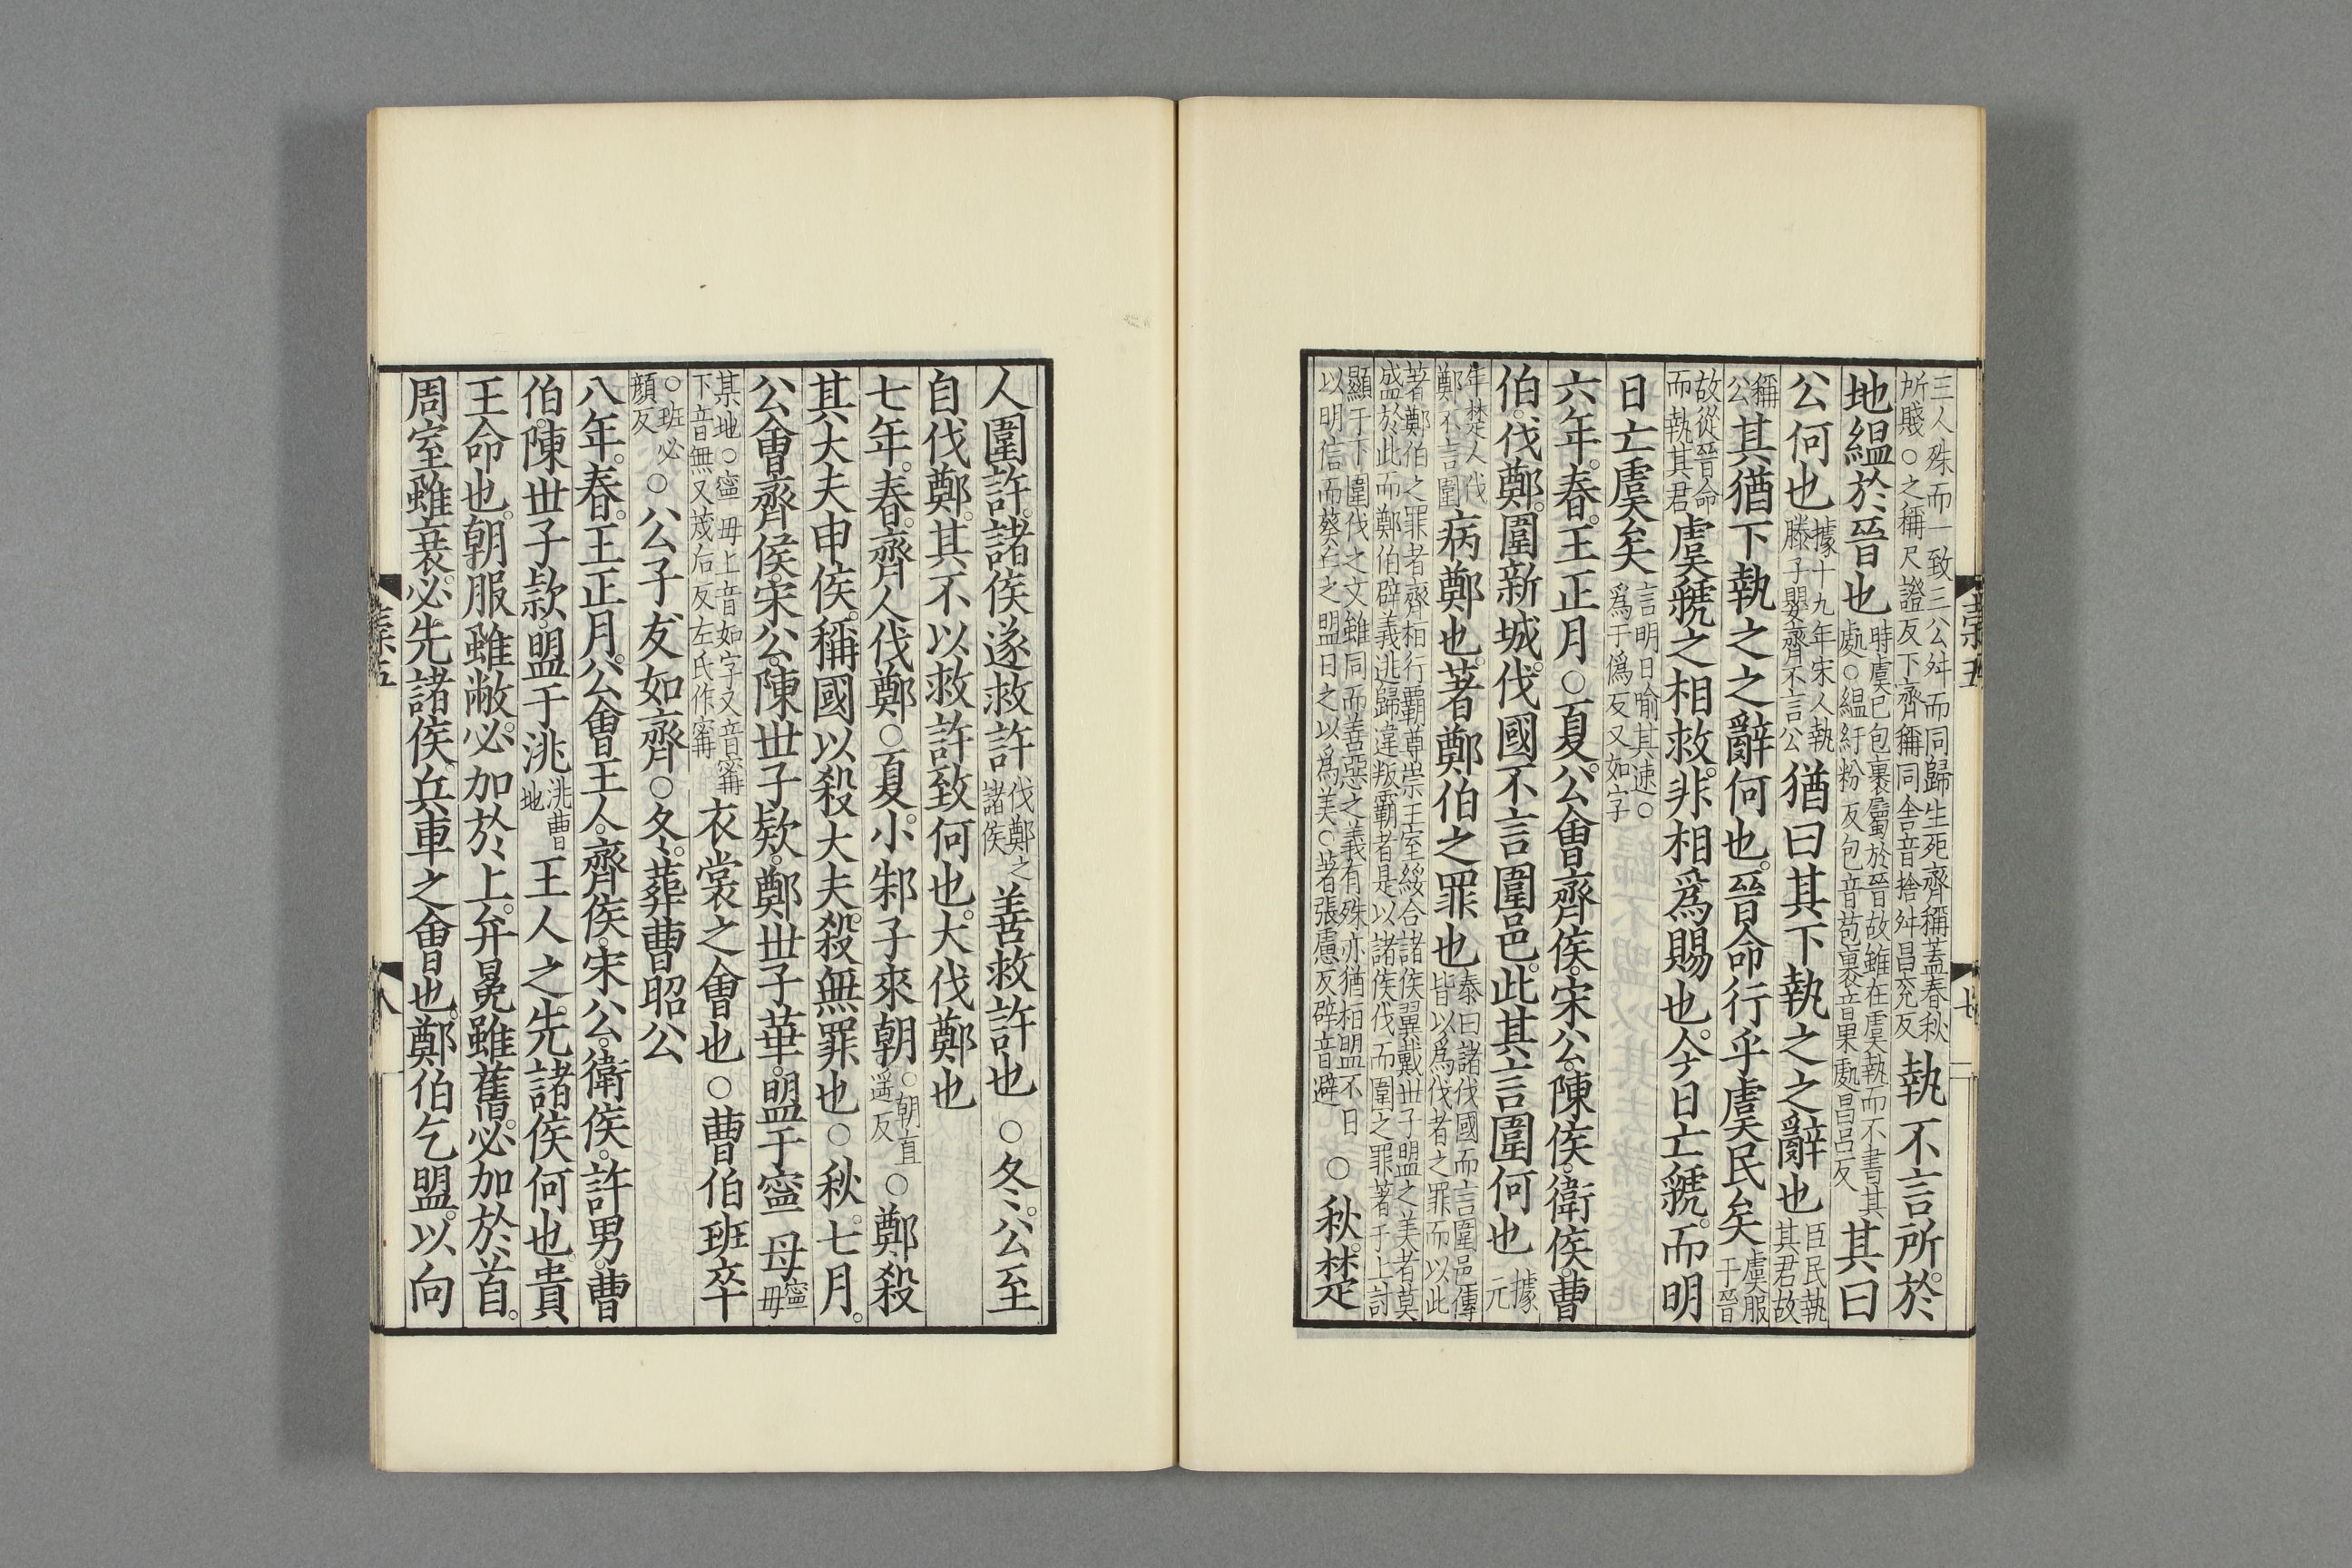 三人殊而一致三公舛而同歸生死齊稱蓋春秋所賤○之稱尺證反下齊稱同舍音捨舛昌兖反執不言所於
地緼於晉也時虞已包裹屬於晉故雖在虞執而不書其處○緼紆粉反包音苞裹音果處昌呂反其曰
公何也據十九年宋人執滕子嬰齊不言公猶曰其下執之之辭也臣民執其君故
稱公其猶下執之之辭何也晉命行乎虞民矣虞服于晉
故從晉命而執其君虞虢之相救非相爲賜也今日亡虢而明
日亡虞矣言明日喻其速○爲于僞反又如字
六年春王正月○夏公會齊侯宋公陳侯衛侯曹
伯伐鄭圍新城伐國不言圍邑此其言圍何也據元
年楚人伐鄭不言圍病鄭也著鄭伯之罪也泰曰諸伐國而言圍邑傳皆以爲伐者之罪而以此
著鄭伯之罪者齊桓行霸尊崇王室綏合諸侯翼戴世子盟之美者莫盛於此而鄭伯辟義逃歸違叛霸者是以諸侯伐而圍之罪著于上討
顯于下圍伐之文雖同而善惡之義有殊亦猶桓盟不日以明信而葵丘之盟日之以爲美○著張慮反辟音避○秋楚
人圍許諸侯遂救許伐鄭之諸侯善救許也○冬公至
自伐鄭其不以救許致何也大伐鄭也
七年春齊人伐鄭○夏小邾子來朝○朝直遥反○鄭殺
其大夫申侯稱國以殺大夫殺無罪也○秋七月
公會齊侯宋公陳世子款鄭世子華盟于甯母甯毋
某地○甯毋上音如字又音甯下音無又茂后反左氏作甯衣裳之會也○曹伯班卒
○班必顔反○公子友如齊○冬葬曹昭公
八年春王正月公會王人齊侯宋公衛侯許男曹
伯陳世子款盟于洮洮曹地王人之先諸侯何也貴
王命也朝服雖敝必加於上弁冕雖舊必加於首
周室雖衰必先諸侯兵車之會也鄭伯乞盟以向
八